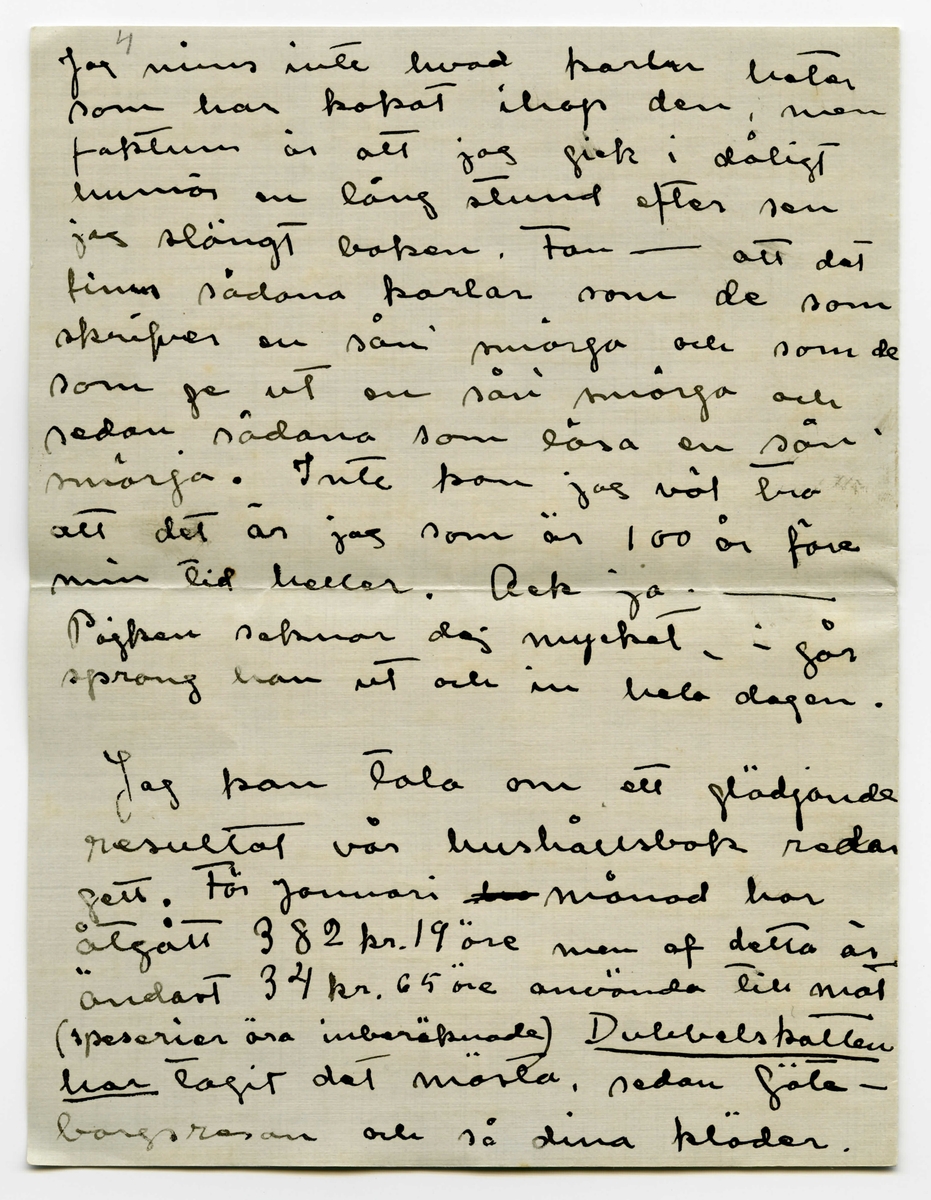 4
Jag mins inte hvad karln heter
som har kokat ihop den, men
faktum är att jag gick i dåligt
humör en lång stund efter sen
jag slängt boken. Fan — att det
finns sådana karlar som de som
skrifver en sån' smörga och som de
som ge ut en sån' smörga och
sedan sådana som läsa en sån'
smörja. Inte kan jag väl tro
att det är jag som är 100 år före
min tid heller. Ack ja. —
Pojken saknar dig mycket, i går
sprang han ut och in hela dagen.
Jag kan tala om ett glädjande
resultat vår hushållsbok redan
gett. För Januari månad har
åtgått 382 kr. 19 öre men af detta är
ändast 34 kr. 65 öre använda till mat
(speserier äro inberäknade) Dubbelskatten
har tagit det mästa, sedan Göte-
borgsresan och så dina kläder.